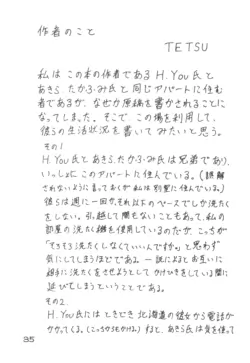 作者のこと
TETSU
私は この本の作者である H.You氏と
あきら たかふみ氏と同じアパートに住む
者であるが、なぜか原稿を書かされることに
なってしまった。そこで この場を利用して、
彼らの生活状況を書いて みたいと思う。
その1
H.You氏とあきら.たかふみ氏は兄弟であり、
いっしょに このアパートに住んでいる。(誤解
されないように言っておくが 私は別室に住んでいる。)
彼らは週に一回か、それ以下の ペースでしか洗たく
をしない。引っ越して間もないこともあって、私の
部屋の洗たく機を使用しているのだが、こっちが
「そろそろ洗たくしなくていいんですか。」と思わず
気にしてしまうほどである 一説によると お互いに
相手に洗たくをさせようとして かけひきをしている間に
延びてしまうということである。
その2.
H.You氏には ときどき 北海道の彼女から電話が
かかってくる。(こっちからもかける) すると、あきら氏は気を使って
35